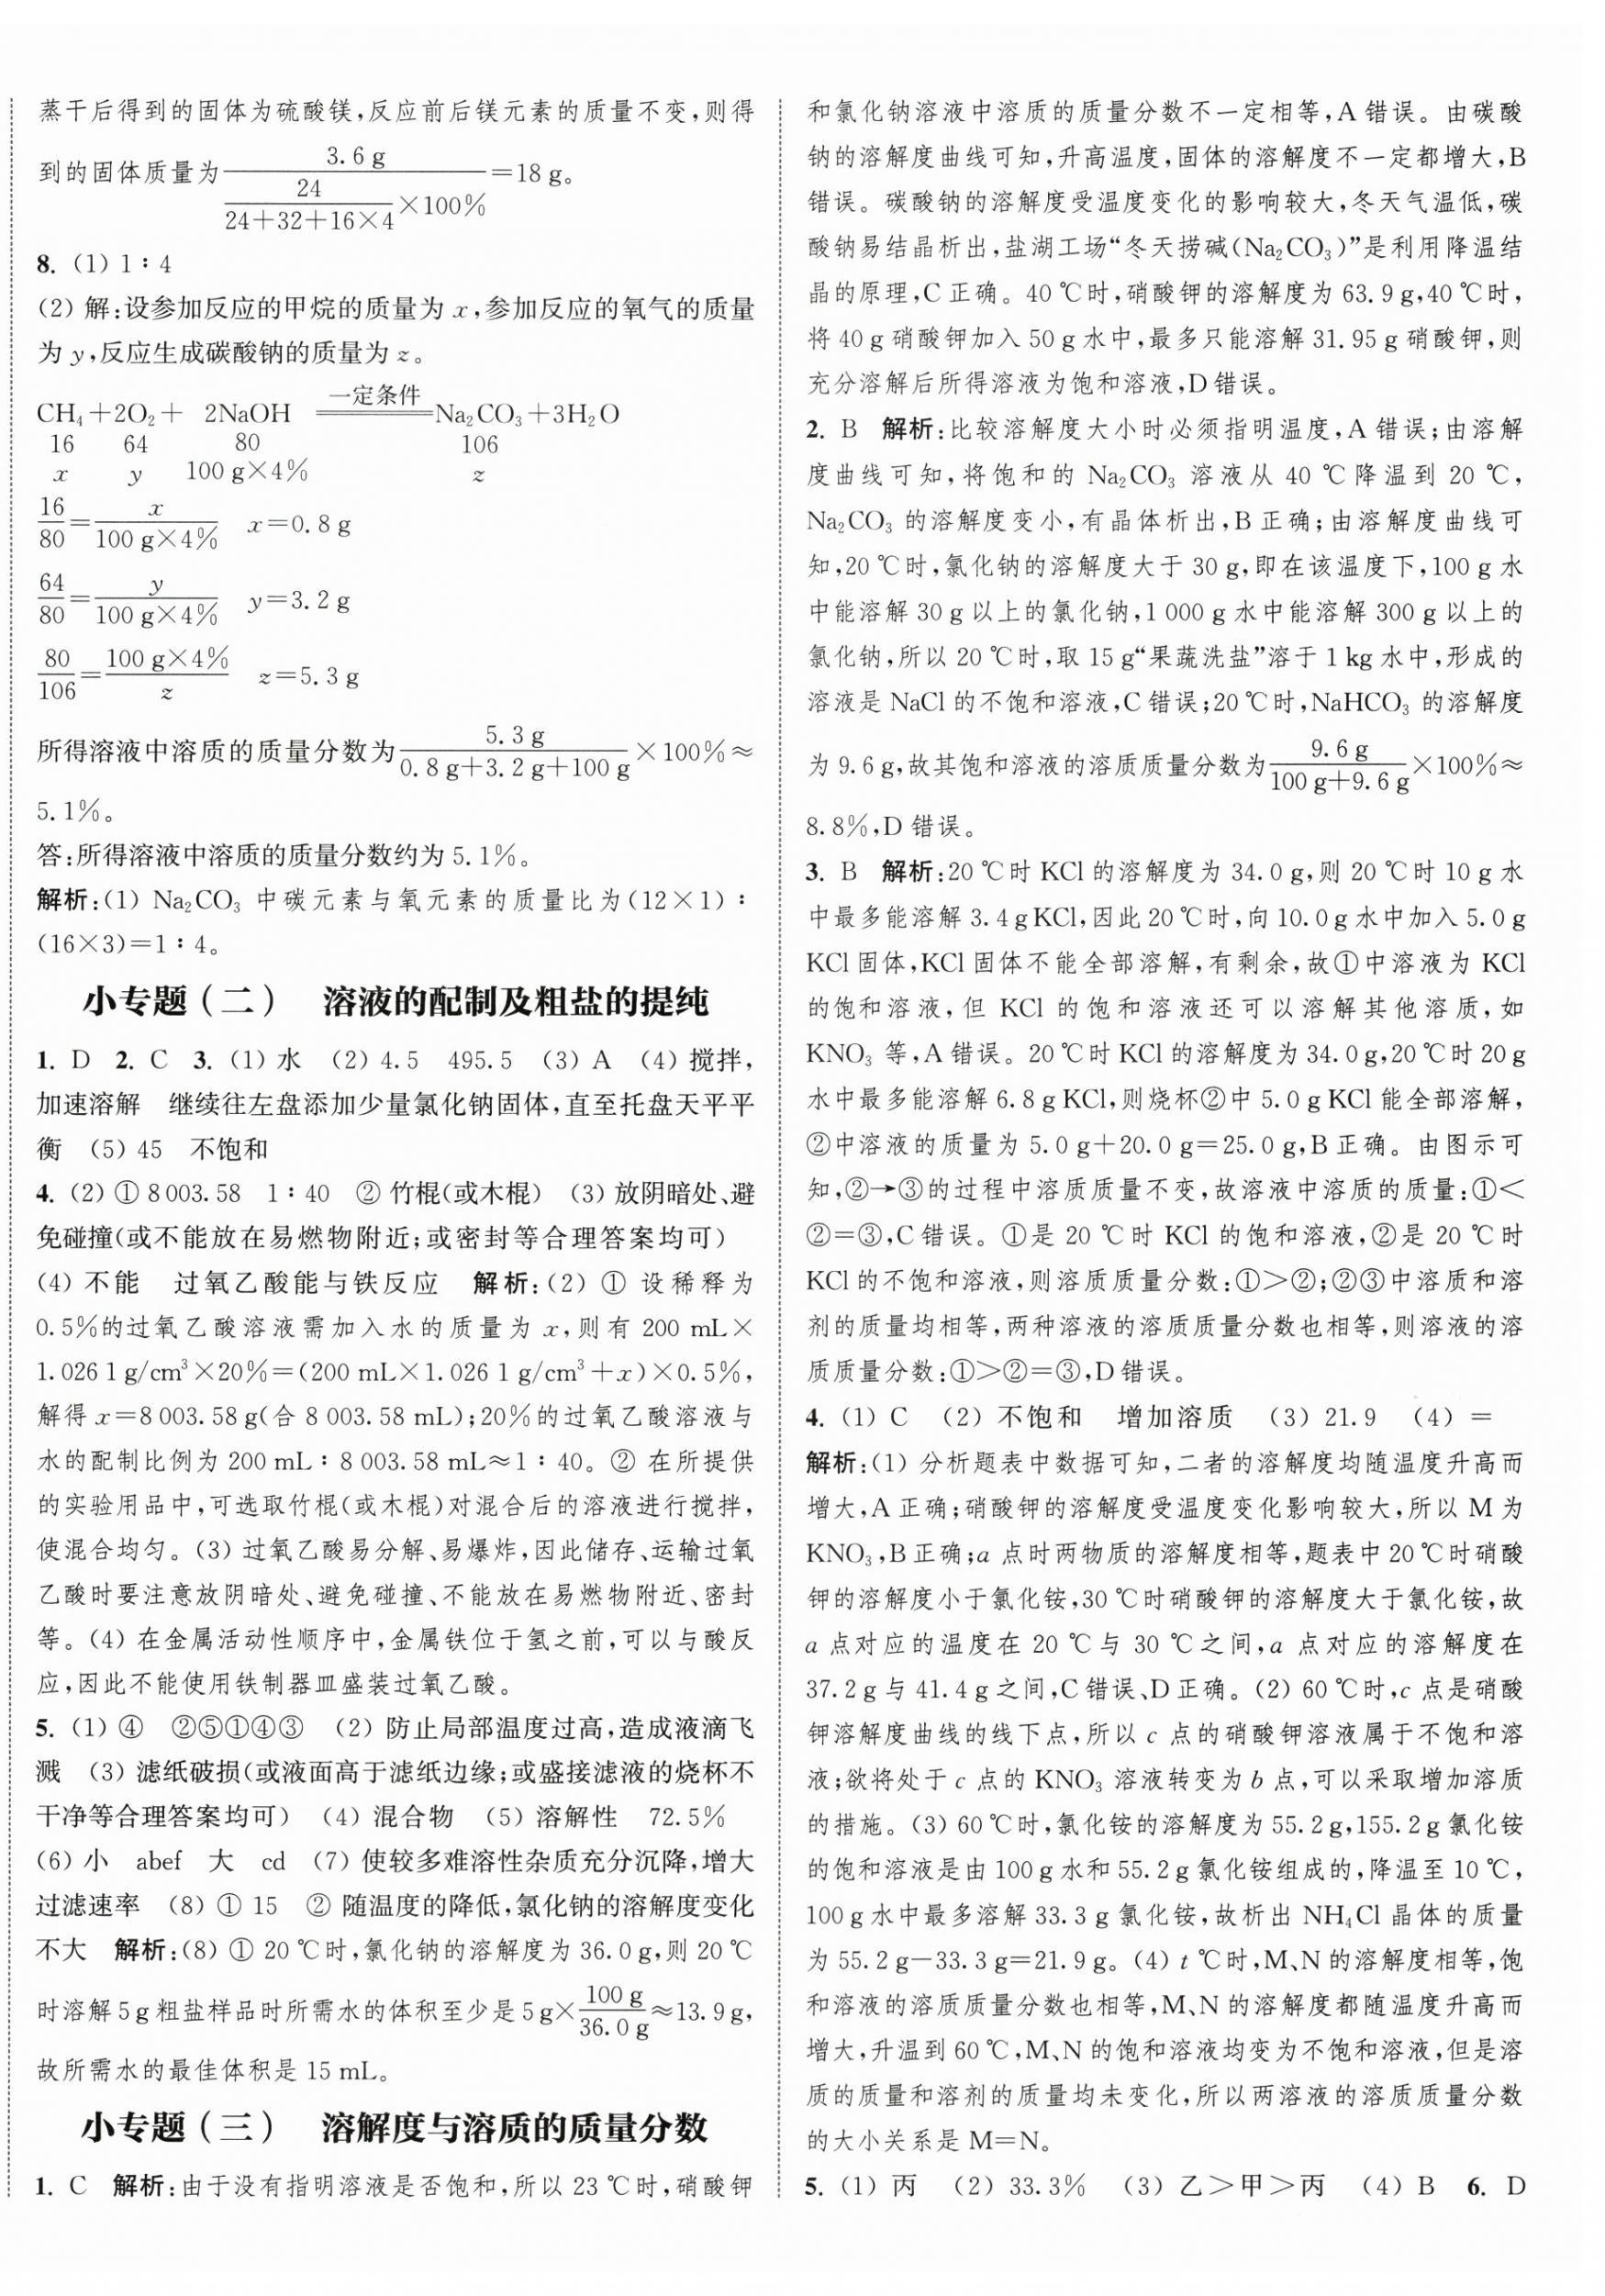 蒸干后得到的固体为硫酸镁,反应前后镁元素的质量不变,则得
到的固体质量为 3.6 g / (24 / (24+32+16×4) ×100%) =18 g。
8. (1) 1∶4
(2) 解:设参加反应的甲烷的质量为 x,参加反应的氧气的质量
为 y,反应生成碳酸钠的质量为 z。
CH₄+2O₂+ 2NaOH 一定条件 ═══ Na₂CO₃+3H₂O
16 64 80 106
x y 100 g×4% z
16/80 = x/(100 g×4%) x=0.8 g
64/80 = y/(100 g×4%) y=3.2 g
80/106 = (100 g×4%)/z z=5.3 g
所得溶液中溶质的质量分数为 5.3 g/(0.8 g+3.2 g+100 g) ×100%≈
5.1%。
答:所得溶液中溶质的质量分数约为 5.1%。
解析:(1) Na₂CO₃ 中碳元素与氧元素的质量比为(12×1)∶
(16×3)=1∶4。
小专题(二) 溶液的配制及粗盐的提纯
1. D 2. C 3. (1) 水 (2) 4.5 495.5 (3) A (4) 搅拌,
加速溶解 继续往左盘添加少量氯化钠固体,直至托盘天平平
衡 (5) 45 不饱和
4. (2) ① 8 003.58 1∶40 ② 竹棍(或木棍) (3) 放阴暗处、避
免碰撞(或不能放在易燃物附近;或密封等合理答案均可)
(4) 不能 过氧乙酸能与铁反应 解析:(2) ① 设稀释为
0.5%的过氧乙酸溶液需加入水的质量为 x,则有 200 mL×
1.026 1 g/cm³×20%=(200 mL×1.026 1 g/cm³+x)×0.5%,
解得 x=8 003.58 g(合 8 003.58 mL);20%的过氧乙酸溶液与
水的配制比例为 200 mL∶8 003.58 mL≈1∶40。② 在所提供
的实验用品中,可选取竹棍(或木棍)对混合后的溶液进行搅拌,
使混合均匀。(3) 过氧乙酸易分解、易爆炸,因此储存、运输过氧
乙酸时要注意放阴暗处、避免碰撞、不能放在易燃物附近、密封
等。(4) 在金属活动性顺序中,金属铁位于氢之前,可以与酸反
应,因此不能使用铁制器皿盛装过氧乙酸。
5. (1) ④ ②⑤①④③ (2) 防止局部温度过高,造成液滴飞
溅 (3) 滤纸破损(或液面高于滤纸边缘;或盛接滤液的烧杯不
干净等合理答案均可) (4) 混合物 (5) 溶解性 72.5%
(6) 小 abef 大 cd (7) 使较多难溶性杂质充分沉降,增大
过滤速率 (8) ① 15 ② 随温度的降低,氯化钠的溶解度变化
不大 解析:(8) ① 20 ℃时,氯化钠的溶解度为 36.0 g,则 20 ℃
时溶解 5 g 粗盐样品时所需水的体积至少是 5 g× 100 g/36.0 g ≈13.9 g,
故所需水的最佳体积是 15 mL。
小专题(三) 溶解度与溶质的质量分数
1. C 解析:由于没有指明溶液是否饱和,所以 23 ℃时,硝酸钾
和氯化钠溶液中溶质的质量分数不一定相等,A 错误。由碳酸
钠的溶解度曲线可知,升高温度,固体的溶解度不一定都增大,B
错误。碳酸钠的溶解度受温度变化的影响较大,冬天气温低,碳
酸钠易结晶析出,盐湖工场“冬天捞碱(Na₂CO₃)”是利用降温结
晶的原理,C 正确。40 ℃时,硝酸钾的溶解度为 63.9 g,40 ℃时,
将 40 g 硝酸钾加入 50 g 水中,最多只能溶解 31.95 g 硝酸钾,则
充分溶解后所得溶液为饱和溶液,D 错误。
2. B 解析:比较溶解度大小时必须指明温度,A 错误;由溶解
度曲线可知,将饱和的 Na₂CO₃ 溶液从 40 ℃降温到 20 ℃,
Na₂CO₃ 的溶解度变小,有晶体析出,B 正确;由溶解度曲线可
知,20 ℃时,氯化钠的溶解度大于 30 g,即在该温度下,100 g 水
中能溶解 30 g 以上的氯化钠,1 000 g 水中能溶解 300 g 以上的
氯化钠,所以 20 ℃时,取 15 g“果蔬洗盐”溶于 1 kg 水中,形成的
溶液是 NaCl 的不饱和溶液,C 错误;20 ℃时,NaHCO₃ 的溶解度
为 9.6 g,故其饱和溶液的溶质质量分数为 9.6 g/(100 g+9.6 g) ×100%≈
8.8%,D 错误。
3. B 解析:20 ℃时 KCl 的溶解度为 34.0 g,则 20 ℃时 10 g 水
中最多能溶解 3.4 g KCl,因此 20 ℃时,向 10.0 g 水中加入 5.0 g
KCl 固体,KCl 固体不能全部溶解,有剩余,故①中溶液为 KCl
的饱和溶液,但 KCl 的饱和溶液还可以溶解其他溶质,如
KNO₃ 等,A 错误。20 ℃时 KCl 的溶解度为 34.0 g,20 ℃时 20 g
水中最多能溶解 6.8 g KCl,则烧杯②中 5.0 g KCl 能全部溶解,
②中溶液的质量为 5.0 g+20.0 g=25.0 g,B 正确。由图示可
知,②→③的过程中溶质质量不变,故溶液中溶质的质量:①<
②=③,C 错误。①是 20 ℃时 KCl 的饱和溶液,②是 20 ℃时
KCl 的不饱和溶液,则溶质质量分数:①>②;②③中溶质和溶
剂的质量均相等,两种溶液的溶质质量分数也相等,则溶液的溶
质质量分数:①>②=③,D 错误。
4. (1) C (2) 不饱和 增加溶质 (3) 21.9 (4) =
解析:(1) 分析题表中数据可知,二者的溶解度均随温度升高而
增大,A 正确;硝酸钾的溶解度受温度变化影响较大,所以 M 为
KNO₃,B 正确;a 点时两物质的溶解度相等,题表中 20 ℃时硝酸
钾的溶解度小于氯化铵,30 ℃时硝酸钾的溶解度大于氯化铵,故
a 点对应的温度在 20 ℃与 30 ℃之间,a 点对应的溶解度在
37.2 g 与 41.4 g 之间,C 错误、D 正确。(2) 60 ℃时,c 点是硝酸
钾溶解度曲线的线下点,所以 c 点的硝酸钾溶液属于不饱和溶
液;欲将处于 c 点的 KNO₃ 溶液转变为 b 点,可以采取增加溶质
的措施。(3) 60 ℃时,氯化铵的溶解度为 55.2 g,155.2 g 氯化铵
的饱和溶液是由 100 g 水和 55.2 g 氯化铵组成的,降温至 10 ℃,
100 g 水中最多溶解 33.3 g 氯化铵,故析出 NH₄Cl 晶体的质量
为 55.2 g−33.3 g=21.9 g。(4) t ℃时,M、N 的溶解度相等,饱
和溶液的溶质质量分数也相等,M、N 的溶解度都随温度升高而
增大,升温到 60 ℃,M、N 的饱和溶液均变为不饱和溶液,但是溶
质的质量和溶剂的质量均未变化,所以两溶液的溶质质量分数
的大小关系是 M=N。
5. (1) 丙 (2) 33.3% (3) 乙>甲>丙 (4) B 6. D